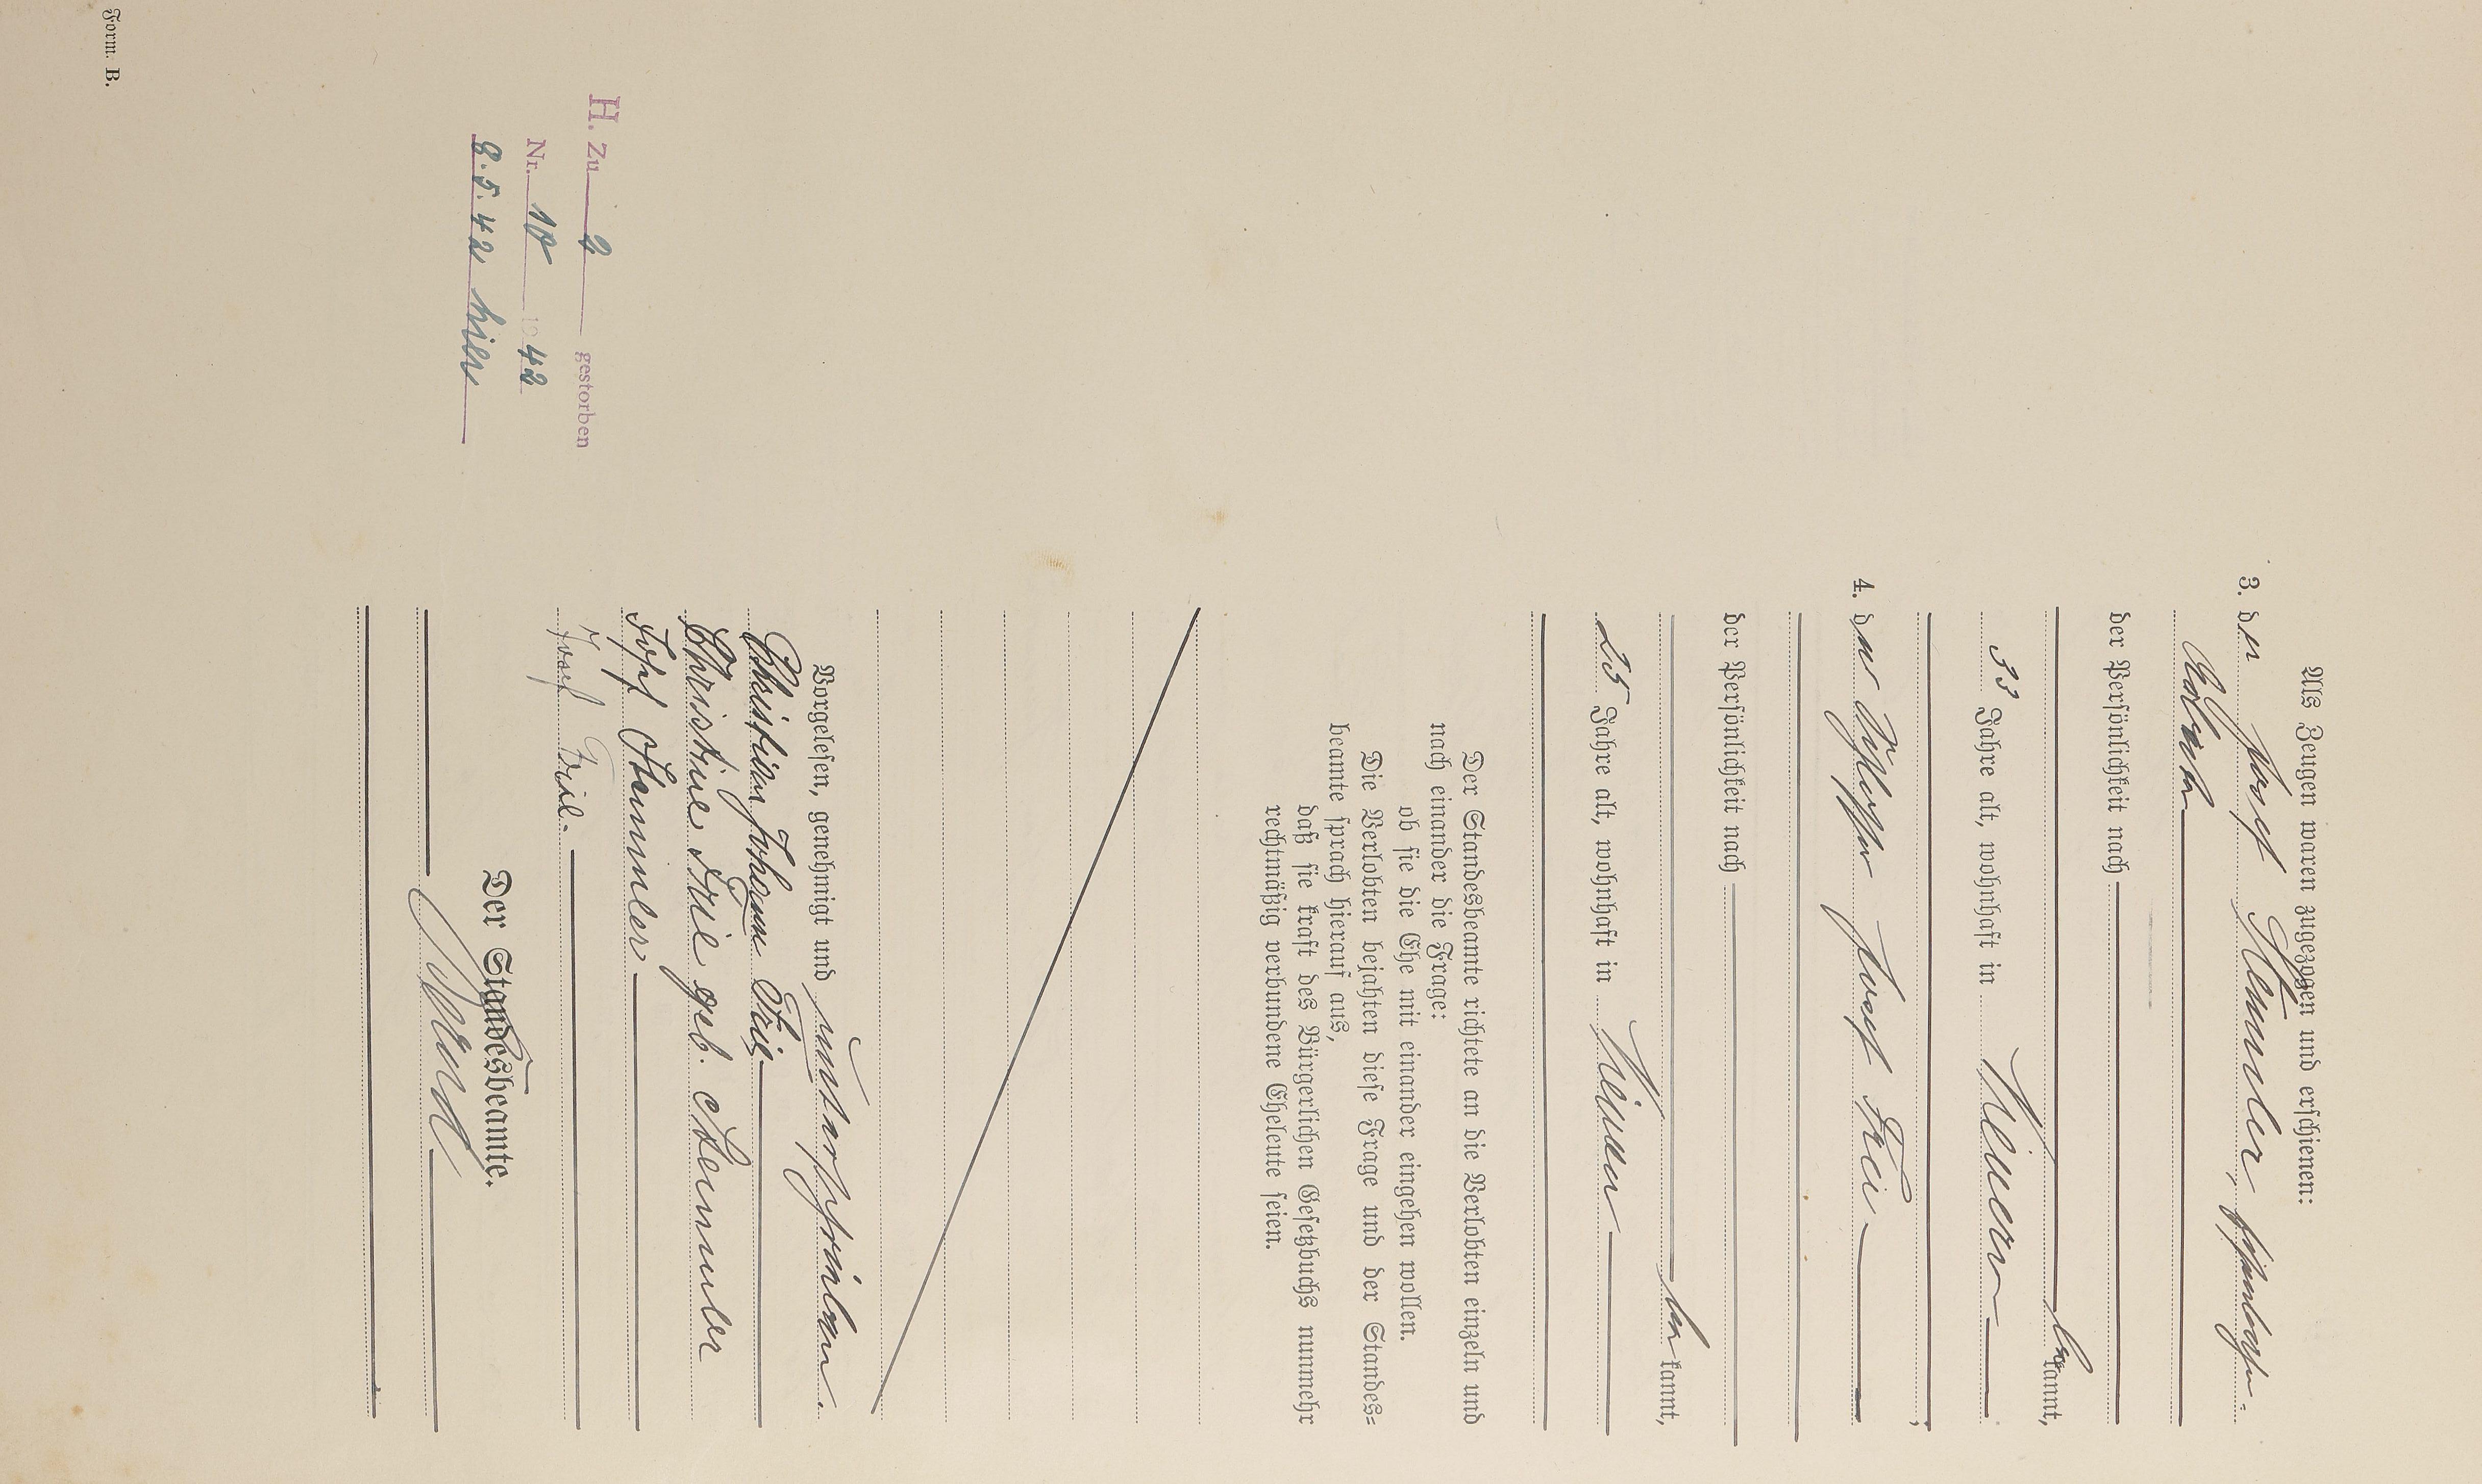 Als Zeugen waren zugezogen und erschienen:
3. der Josef Stemmler,
der Persönlichkeit nach
bekannt,
33 Jahre alt, wohnhaft in
4. der Josef Frei
;
der Persönlichkeit nach
bekannt,
25 Jahre alt, wohnhaft in
Der Standesbeamte richtete an die Verlobten einzeln und
nach einander die Frage:
ob sie die Ehe mit einander eingehen wollen.
Die Verlobten bejahten diese Frage und der Standes=
beamte sprach hierauf aus,
daß sie kraft des Bürgerlichen Gesetzbuchs nunmehr
rechtmäßig verbundene Eheleute seien.
Vorgelesen, genehmigt und unterschrieben.
Christian Johann Frei
Christine Frei geb. Stemmler
Josef Stemmler
Josef Frei.
Der Standesbeamte.
H. Zu 2 gestorben
Nr. 10 1942
8.5.42 hier
Form. B.